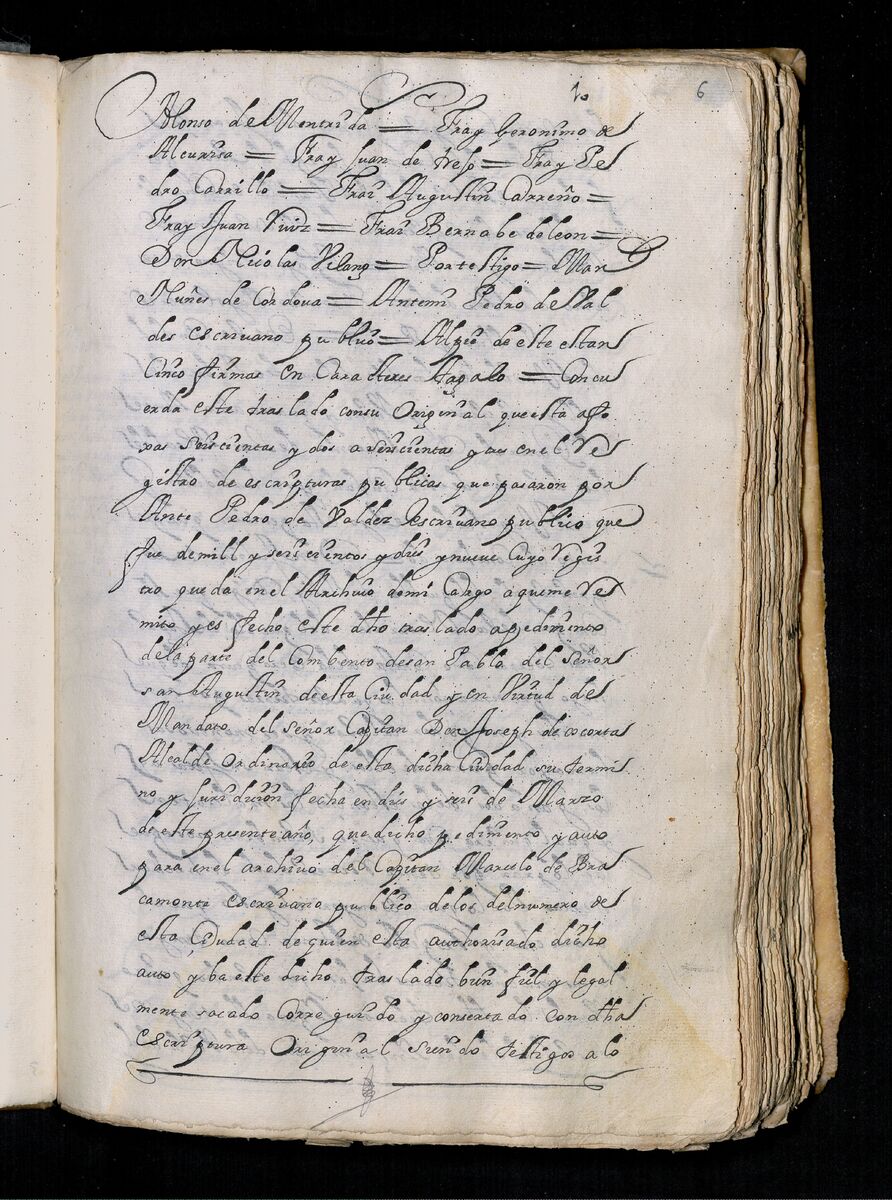 10 6
Alonso de Mentrida = Fray Geronimo de
Aleurisa = Fray Juan de treso = Fray Pe
dro Carrillo = Frai Augustin Carreño =
Fray Juan Ruiz = Frai Bernabe de leon =
Don Nicolas Vilanz = Por testigo = Mar
Nuñes de Cordova = Antemi Pedro de Val
des escrivano publico = Alpie de este estan
Cinco firmas en Caracteres tagalo = Concu
erda este traslado consu Original que esta a fo
xas seiscientas y dos a seiscientas y tres en el Re
gistro de escripturas publicas que pasaron por
Ante Pedro de Valdez escrivano publico que
fue de mill y seiscientos y dies y nueve Cuyo regis
tro queda en el Archivo de mi Cargo a que me Re
mito y es fecho este dho traslado a pedimento
dela parte del Combento de san Pablo del señor
san Augustin de esta Ciudad y en Virtud de
Mandato del señor Capitan Don Joseph de cocorta
Alcalde Ordinario de esta dicha Ciudad su termi
no y Juridicion fecha en dies y seis de Marzo
de este presente año, que dicho pedimento y auto
para en el archivo del Capitan Marcelo de Bra
camonte escrivano publico de los del numero de
esta Ciudad de quien esta authorisado dicho
auto y ba este dicho traslado bien fiel y legal
mente sacado Corregido y consertado con dha
escriptura Original siendo testigos a lo